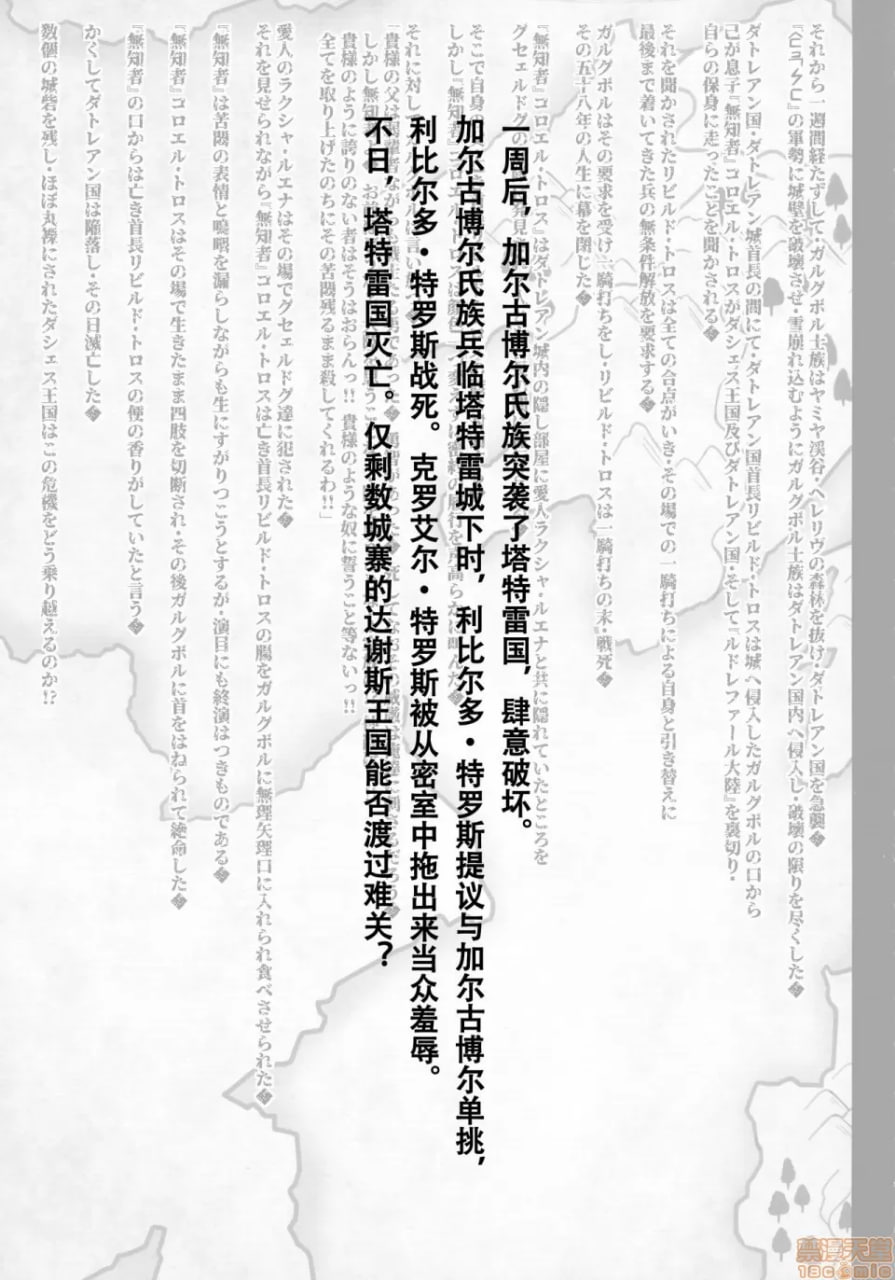 それから一週間経たずして・ガルグボル士族はヤミヤ渓谷・ヘレリヴの森林を抜け・ダトレアン国を急襲
の軍勢に城壁を破壊させ・雪崩れ込むようにガルグボル士族はダトレアン国内へ侵入し・破壊の限りを尽くした
ダトレアン国・ダトレアン城首長の間にて・ダトレアン国首長リビルド・トロスは城へ侵入したガルグボルの口から
己が息子『無知者』ゴロエル・トロスがダシェス王国及びダトレアン国・そして『ルドレファール大陸』を裏切り・
自らの保身に走ったことを聞かされる
それを聞かされたリビルド・トロスは全ての合点がいき・その場での一騎打ちによる自身と引き替えに
最後まで着いてきた兵の無条件解放を要求する
ガルグボルはその要求を受け一騎打ちをし・リビルド・トロスは一騎打ちの末・戦死
その五十八年の人生に幕を閉じた
『無知者』ゴロエル・トロスはダトレアン城内の隠し部屋に愛人ラクシャ・ルエナと共に隠れていたところを
グセェルドグの
一周后，加尔古博尔氏族突袭了塔特雷国，肆意破坏。
そこで自身の
しかし『無知者』ゴロエル・トロスは
加尔古博尔氏族兵临塔特雷城下时，利比尔多·特罗斯提议与加尔古博尔单挑，
それに対して
利比尔多·特罗斯战死。克罗艾尔·特罗斯被从密室中拖出来当众羞辱。
「貴様の父は
しかし無知
不日，塔特雷国灭亡。仅剩数城寨的达谢斯王国能否渡过难关？
貴様のように誇りのない者はそうはおらんっ!! 貴様のような奴に誓うこと等ないっ!!
全てを取り上げたのちにその苦悶残るまま殺してくれるわ!!」
愛人のラクシャ・ルエナはその場でグセェルドグ達に犯された
それを見せられながら『無知者』ゴロエル・トロスは亡き首長リビルド・トロスの腸をガルグボルに無理矢理口に入れられ食べさせられた
『無知者』は苦悶の表情と嗚咽を漏らしながらも生にすがりつこうとするが・演目にも終演はつきものである
『無知者』ゴロエル・トロスはその場で生きたまま四肢を切断され・その後ガルグボルに首をはねられて絶命した
『無知者』の口からは亡き首長リビルド・トロスの便の香りがしていたと言う
かくしてダトレアン国は陥落し・その日滅亡した
数個の城砦を残し・ほぼ丸裸にされたダシェス王国はこの危機をどう乗り越えるのか!?
禁漫天堂
18comic